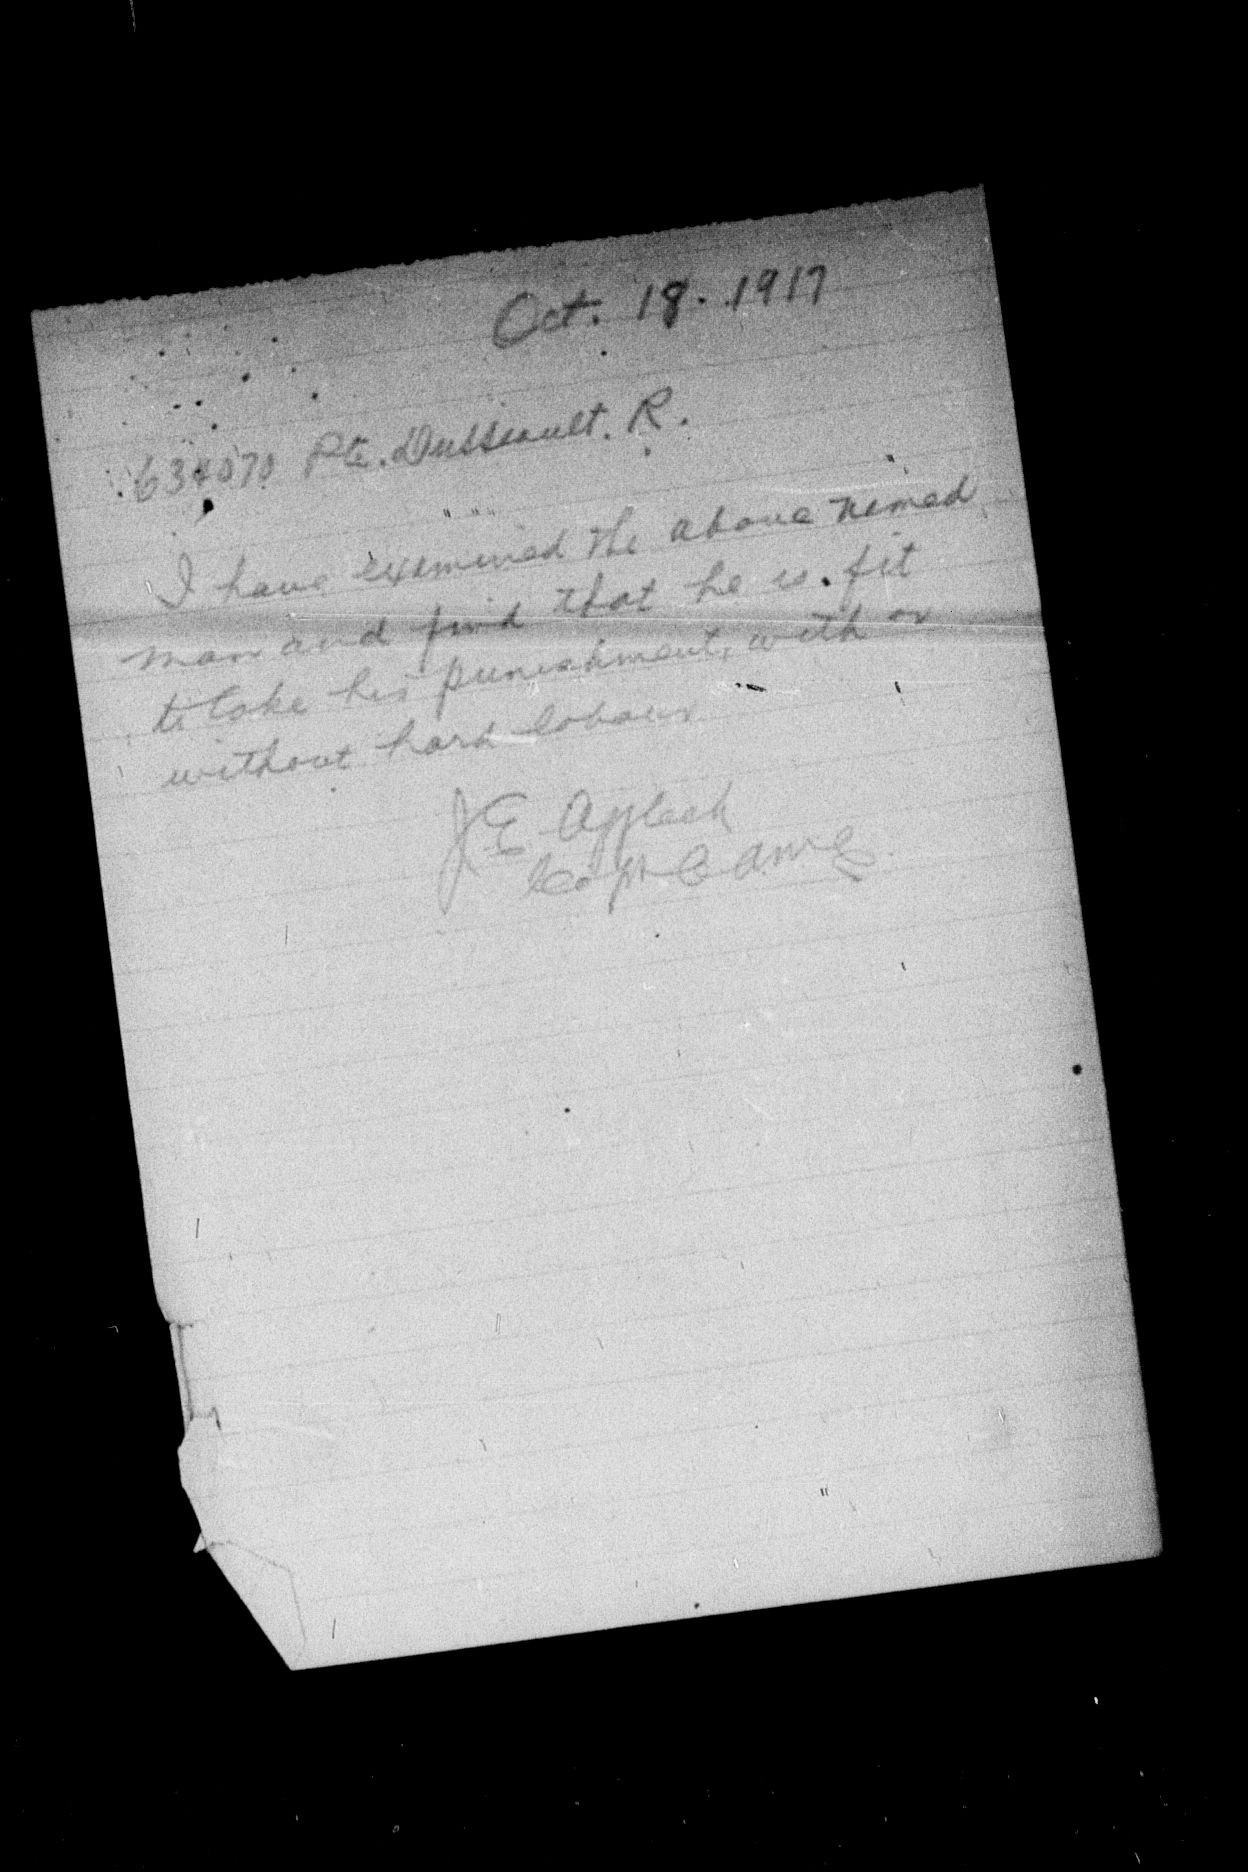 Oct. 18. 1917
634070 Pte. Dusseault. R.
I have examined the above named
man and find that he is fit
to take his punishment, with or
without hard labour
J E Affleck
Capt C A M C